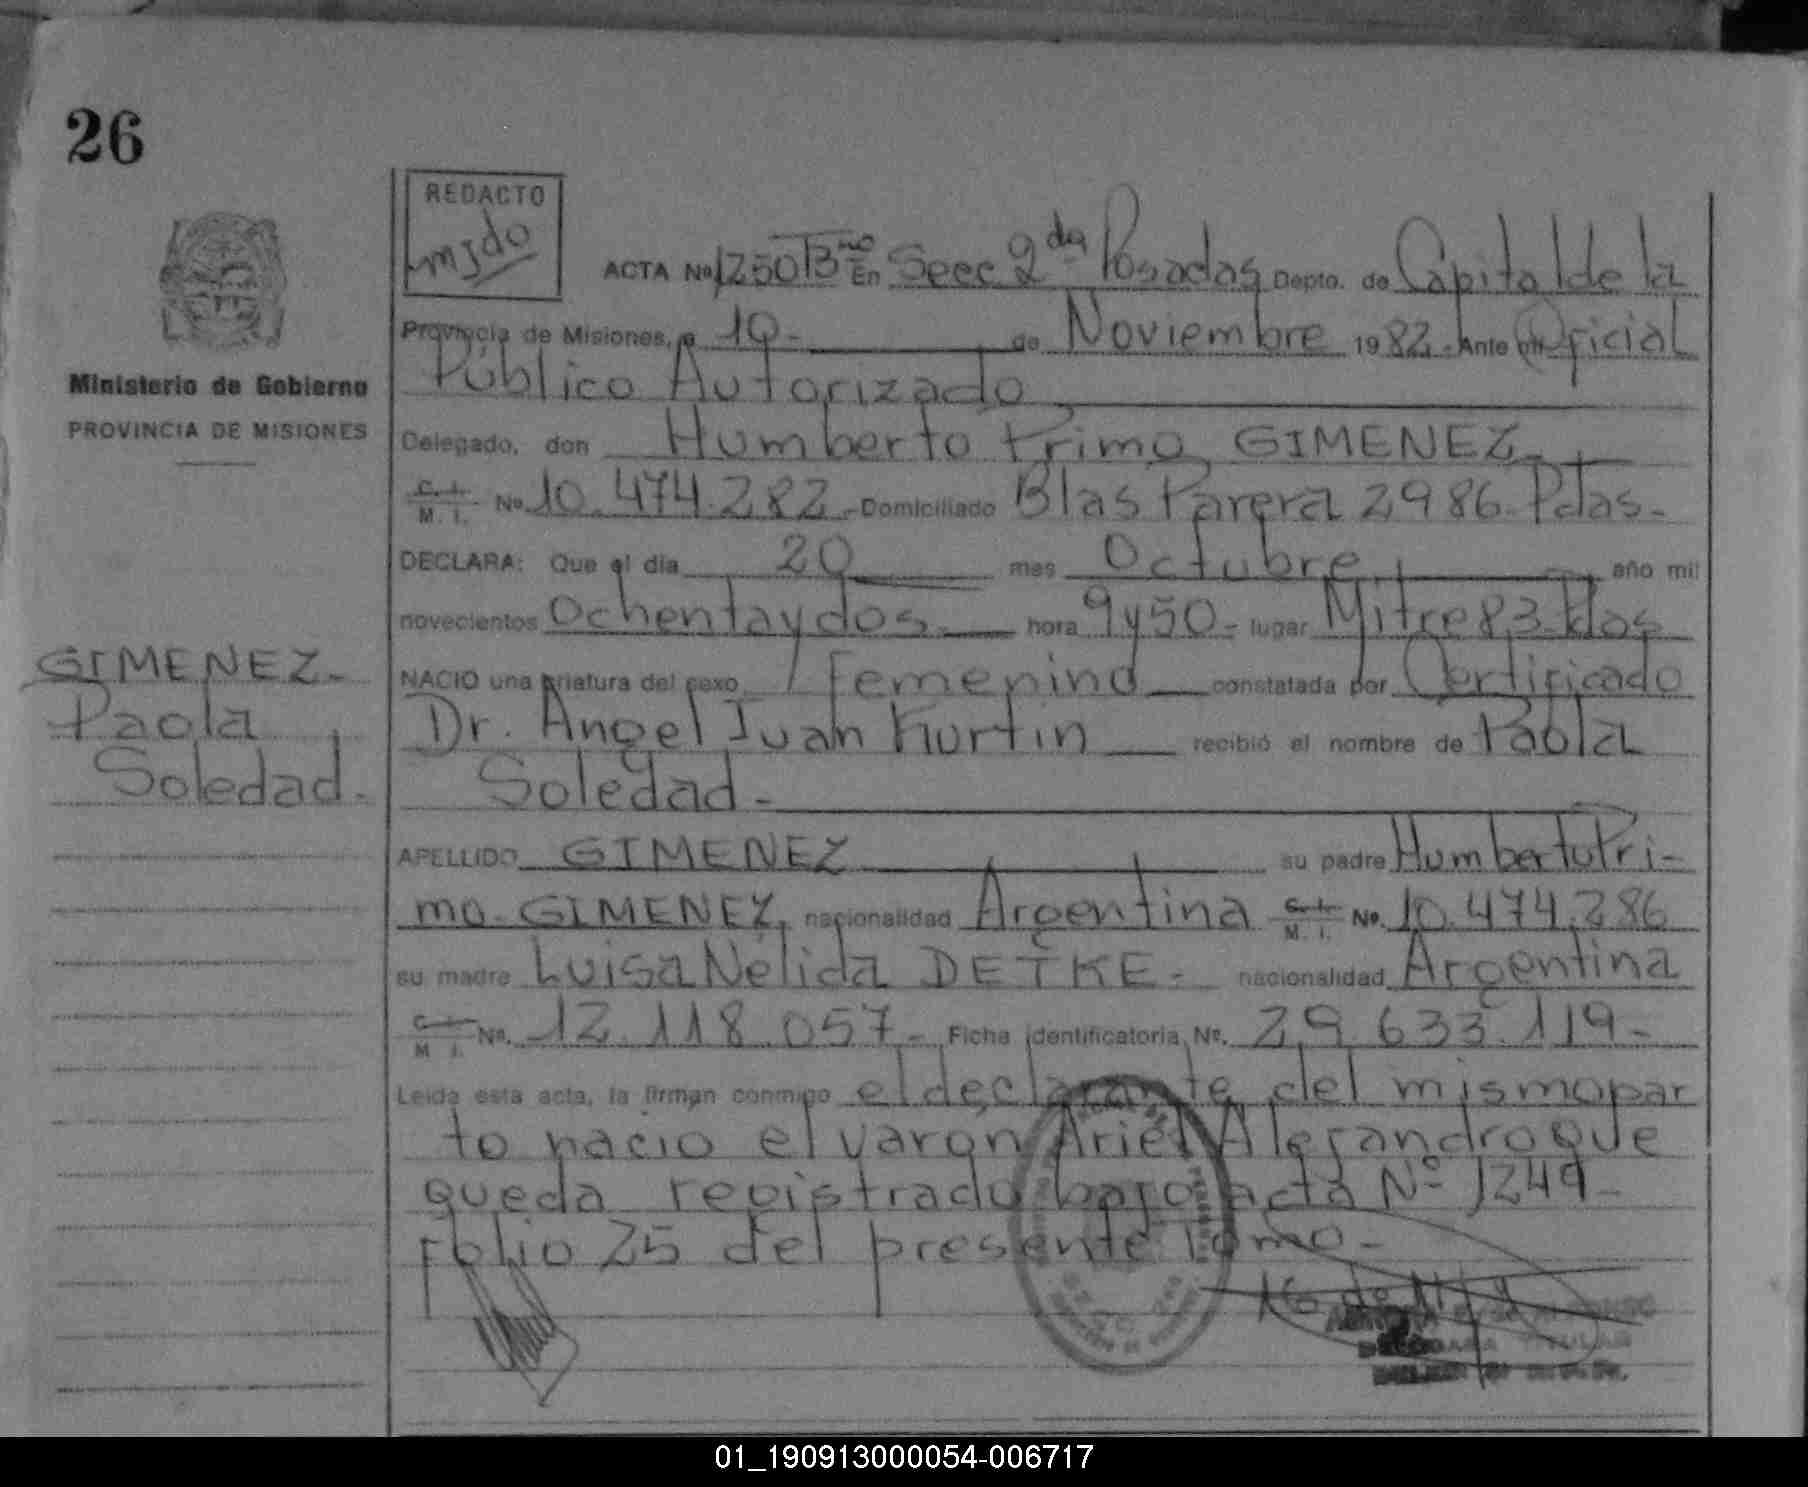 26
REDACTO
ACTA No 1250 B no En Secc. 2da Posadas Depto. de Capital de la
Provincia de Misiones, a 10- de Noviembre 1982.- Ante mi Oficial
Público Autorizado
Ministerio de Gobierno
PROVINCIA DE MISIONES
Delegado, don Humberto Primo GIMENEZ-
C. I. M. I. No 10.474.282.- Domiciliado Blas Parera 2986- Pdas-
DECLARA: Que el día 20 mes Octubre año mil
novecientos Ochentaydos- hora 9y50- lugar Mitre 83-Pdas
GIMENEZ-
Paola
Soledad-
NACIO una criatura del sexo Femenino constatada por Certificado
Dr. Angel Juan Kurtin recibió el nombre de Paola
Soledad-
APELLIDO GIMENEZ su padre Humberto Pri-
mo-GIMENEZ, nacionalidad Argentina C. I. M. I. No. 10.474.286
su madre Luisa Nélida DETKE- nacionalidad Argentina
C. I. M. I. No. 12.118.057- Ficha identificatoria, No. 29.633.119-
Leída esta acta, la firman conmigo el declarante del mismo par
to nacio el varon Ariel Alejandro que
queda registrado bajo acta Nº 1249-
Folio 25 del presente Tomo-
TITULAR
01_190913000054-006717